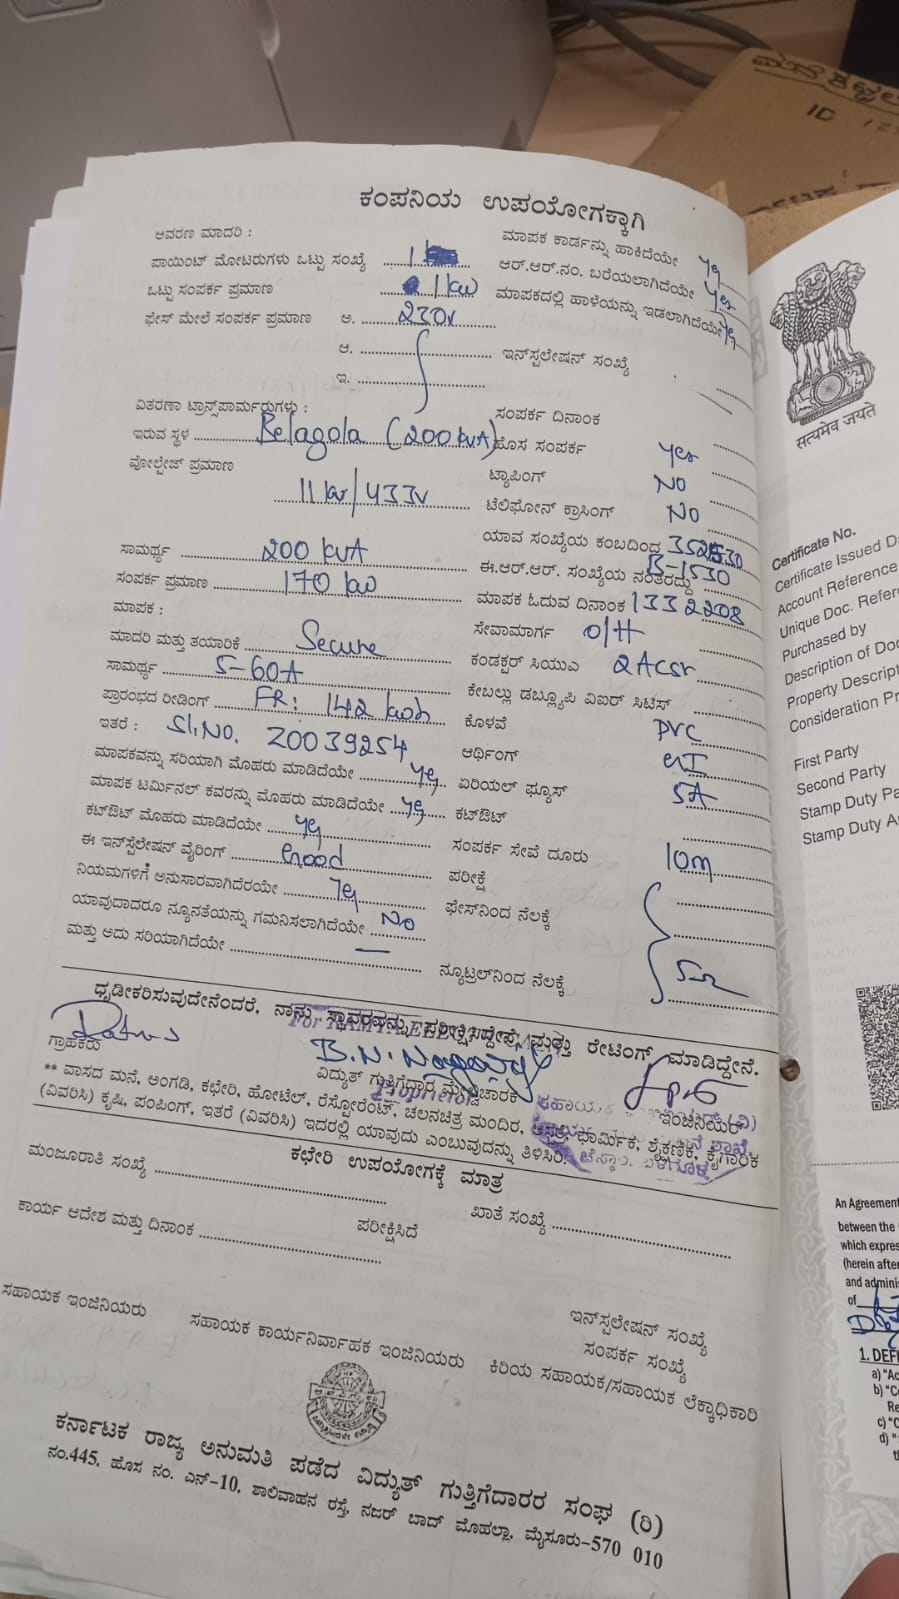 ಮನ ಕಜ್ಜಲ
ID
ಕಂಪನಿಯ ಉಪಯೋಗಕ್ಕಾಗಿ
ಆವರಣ ಮಾದರಿ :
ಮಾಪಕ ಕಾರ್ಡನ್ನು ಹಾಕಿದೆಯೇ yes
ಪಾಯಿಂಟ್ ಮೋಟರುಗಳು ಒಟ್ಟು ಸಂಖ್ಯೆ 1
ಆರ್.ಆರ್.ನಂ. ಬರೆಯಲಾಗಿದೆಯೇ yes
ಒಟ್ಟು ಸಂಪರ್ಕ ಪ್ರಮಾಣ 1kw
ಮಾಪಕದಲ್ಲಿ ಹಾಳೆಯನ್ನು ಇಡಲಾಗಿದೆಯೇ yes
ಫೇಸ್ ಮೇಲೆ ಸಂಪರ್ಕ ಪ್ರಮಾಣ ಅ. 230v
ಆ. ಇನ್‌ಸ್ಟಲೇಷನ್ ಸಂಖ್ಯೆ
ಇ.
ವಿತರಣಾ ಟ್ರಾನ್ಸ್‌ಪಾರ್ಮರುಗಳು :
ಸಂಪರ್ಕ ದಿನಾಂಕ
ಇರುವ ಸ್ಥಳ Belagola (200 kVA)
ಹೊಸ ಸಂಪರ್ಕ yes
ವೋಲ್ಟೇಜ್ ಪ್ರಮಾಣ 11 kv/433v
ಟ್ಯಾಪಿಂಗ್ NO
ಟೆಲಿಫೋನ್ ಕ್ರಾಸಿಂಗ್ NO
ಸಾಮರ್ಥ್ಯ 200 kVA
ಯಾವ ಸಂಖ್ಯೆಯ ಕಂಬದಿಂದ
ಸಂಪರ್ಕ ಪ್ರಮಾಣ 170 kw
ಈ.ಆರ್.ಆರ್. ಸಂಖ್ಯೆಯ ನಂತರದ್ದು B-1530
ಮಾಪಕ :
ಮಾಪಕ ಓದುವ ದಿನಾಂಕ 1332208
ಮಾದರಿ ಮತ್ತು ತಯಾರಿಕೆ Secure
ಸೇವಾಮಾರ್ಗ O/H
ಸಾಮರ್ಥ್ಯ 5-60A
ಕಂಡಕ್ಟರ್ ಸಿಯುವಿ 2ACSr
ಪ್ರಾರಂಭದ ರೀಡಿಂಗ್ FR: 142 kwh
ಕೇಬಲ್ಲು ಡಬ್ಲ್ಯೂಪಿ ವಿಐರ್ ಸಿಟಿಸ್
ಇತರೆ : Sl.NO. Z0039254
ಕೊಳವೆ PVC
ಮಾಪಕವನ್ನು ಸರಿಯಾಗಿ ಮೊಹರು ಮಾಡಿದೆಯೇ yes
ಆರ್ಥಿಂಗ್ GI
ಮಾಪಕ ಟರ್ಮಿನಲ್ ಕವರನ್ನು ಮೊಹರು ಮಾಡಿದೆಯೇ yes
ಏರಿಯಲ್ ಫ್ಯೂಸ್ 5A
ಕಟ್‌ಔಟ್ ಮೊಹರು ಮಾಡಿದೆಯೇ yes
ಕಟ್‌ಔಟ್
ಈ ಇನ್‌ಸ್ಟೆಲೇಷನ್ ವೈರಿಂಗ್ Good
ಸಂಪರ್ಕ ಸೇವೆ ದೂರು 10m
ನಿಯಮಗಳಿಗೆ ಅನುಸಾರವಾಗಿದೆರಯೇ yes
ಪರೀಕ್ಷೆ
ಯಾವುದಾದರೂ ನ್ಯೂನತೆಯನ್ನು ಗಮನಿಸಲಾಗಿದೆಯೇ No
ಫೇಸ್‌ನಿಂದ ನೆಲಕ್ಕೆ
ಮತ್ತು ಅದು ಸರಿಯಾಗಿದೆಯೇ —
ನ್ಯೂಟ್ರಲ್‌ನಿಂದ ನೆಲಕ್ಕೆ 5Ω
ಧೃಡೀಕರಿಸುವುದೇನೆಂದರೆ, ನಾನು ಸ್ಥಾವರವನ್ನು ಪರೀಕ್ಷಿಸಿದ್ದೇವೆ ಮತ್ತು ರೇಟಿಂಗ್ ಮಾಡಿದ್ದೇನೆ.
ಗ್ರಾಹಕರು
ವಿದ್ಯುತ್ ಗುತ್ತಿಗೆದಾರ ಮೇಲ್ವಿಚಾರಕ
Proprietor
ಇಂಜಿನಿಯರ್
** ವಾಸದ ಮನೆ, ಅಂಗಡಿ, ಕಛೇರಿ, ಹೋಟೆಲ್, ರೆಸ್ಟೋರೆಂಟ್, ಚಲನಚಿತ್ರ ಮಂದಿರ, ಆಸ್ಪತ್ರೆ, ಧಾರ್ಮಿಕ, ಶೈಕ್ಷಣಿಕ, ಕೈಗಾರಿಕ
(ವಿವರಿಸಿ) ಕೃಷಿ, ಪಂಪಿಂಗ್, ಇತರೆ (ವಿವರಿಸಿ) ಇದರಲ್ಲಿ ಯಾವುದು ಎಂಬುವುದನ್ನು ತಿಳಿಸಿರಿ.
ಕಛೇರಿ ಉಪಯೋಗಕ್ಕೆ ಮಾತ್ರ
ಮಂಜೂರಾತಿ ಸಂಖ್ಯೆ
ಖಾತೆ ಸಂಖ್ಯೆ
ಕಾರ್ಯ ಆದೇಶ ಮತ್ತು ದಿನಾಂಕ
ಪರೀಕ್ಷಿಸಿದೆ
ಇನ್‌ಸ್ಟಲೇಷನ್ ಸಂಖ್ಯೆ
ಸಂಪರ್ಕ ಸಂಖ್ಯೆ
ಸಹಾಯಕ ಇಂಜಿನಿಯರು ಸಹಾಯಕ ಕಾರ್ಯನಿರ್ವಾಹಕ ಇಂಜಿನಿಯರು ಕಿರಿಯ ಸಹಾಯಕ/ಸಹಾಯಕ ಲೆಕ್ಕಾಧಿಕಾರಿ
ಕರ್ನಾಟಕ ರಾಜ್ಯ ಅನುಮತಿ ಪಡೆದ ವಿದ್ಯುತ್ ಗುತ್ತಿಗೆದಾರರ ಸಂಘ (ರಿ)
ನಂ.445, ಹೊಸ ನಂ. ಎನ್-10, ಶಾಲಿವಾಹನ ರಸ್ತೆ, ನಜರ್ ಬಾದ್ ಮೊಹಲ್ಲಾ, ಮೈಸೂರು-570 010
सत्यमेव जयते
Certificate No.
Certificate Issued D
Account Reference
Unique Doc. Refer
Purchased by
Description of Doc
Property Descript
Consideration Pr
First Party
Second Party
Stamp Duty Pa
Stamp Duty A
An Agreement
between the
which expres
(herein after
and adminis
of
1. DEFI
a) "Ac
b) "Co
Re
c) "C
d) "